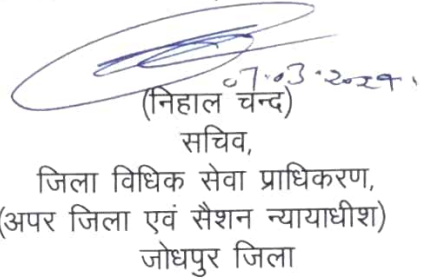 07.03.2024.
(निहाल चन्द)
सचिव,
जिला विधिक सेवा प्राधिकरण,
(अपर जिला एवं सैशन न्यायाधीश)
जोधपुर जिला